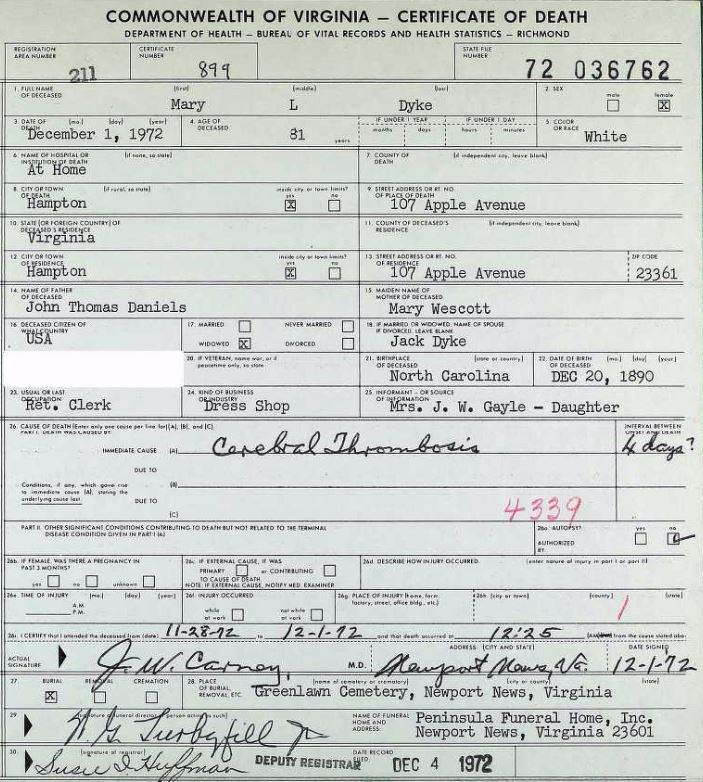 COMMONWEALTH OF VIRGINIA — CERTIFICATE OF DEATH
DEPARTMENT OF HEALTH — BUREAU OF VITAL RECORDS AND HEALTH STATISTICS — RICHMOND
REGISTRATION AREA NUMBER 211 CERTIFICATE NUMBER 899 STATE FILE NUMBER 72 036762
1. FULL NAME OF DECEASED (first) (middle) (last) 2. SEX male female
Mary L Dyke X
3. DATE OF DEATH (mo.) (day) (year) 4. AGE OF DECEASED IF UNDER 1 YEAR IF UNDER 1 DAY 5. COLOR OR RACE
months days hours minutes
December 1, 1972 81 years White
6. NAME OF HOSPITAL OR INSTITUTION OF DEATH (if none, so state) 7. COUNTY OF DEATH (if independent city, leave blank)
At Home
8. CITY OR TOWN OF DEATH (if rural, so state) inside city or town limits? yes no 9. STREET ADDRESS OR RT. NO. OF PLACE OF DEATH
Hampton X 107 Apple Avenue
10. STATE (OR FOREIGN COUNTRY) OF DECEASED'S RESIDENCE 11. COUNTY OF DECEASED'S RESIDENCE (if independent city, leave blank)
Virginia
12. CITY OR TOWN OF RESIDENCE inside city or town limits? yes no 13. STREET ADDRESS OR RT. NO. OF RESIDENCE ZIP CODE
Hampton X 107 Apple Avenue 23361
14. NAME OF FATHER OF DECEASED 15. MAIDEN NAME OF MOTHER OF DECEASED
John Thomas Daniels Mary Wescott
16. DECEASED CITIZEN OF WHAT COUNTRY 17. MARRIED NEVER MARRIED 18. IF MARRIED OR WIDOWED, NAME OF SPOUSE IF DIVORCED, LEAVE BLANK
USA WIDOWED X DIVORCED Jack Dyke
20. IF VETERAN, name war, or if peacetime only, so state 21. BIRTHPLACE OF DECEASED (state or country) 22. DATE OF BIRTH OF DECEASED (mo.) (day) (year)
North Carolina DEC 20, 1890
23. USUAL OR LAST OCCUPATION 24. KIND OF BUSINESS OR INDUSTRY 25. INFORMANT - OR SOURCE OF INFORMATION
Ret. Clerk Dress Shop Mrs. J. W. Gayle - Daughter
26. CAUSE OF DEATH (Enter only one cause per line for (A), (B), and (C). INTERVAL BETWEEN ONSET AND DEATH
PART I. DEATH WAS CAUSED BY:
IMMEDIATE CAUSE (A) Cerebral Thrombosis 4 days?
DUE TO
Conditions, if any, which gave rise to immediate cause (A), stating the underlying cause last. (B)
DUE TO
(C) 4339
PART II. OTHER SIGNIFICANT CONDITIONS CONTRIBUTING TO DEATH BUT NOT RELATED TO THE TERMINAL DISEASE CONDITION GIVEN IN PART I (A) 26a. AUTOPSY? yes no
AUTHORIZED BY:
26b. IF FEMALE, WAS THERE A PREGNANCY IN PAST 3 MONTHS? 26c. IF EXTERNAL CAUSE, IT WAS 26d. DESCRIBE HOW INJURY OCCURRED. (enter nature of injury in part I or part II)
yes no unknown PRIMARY or CONTRIBUTING TO CAUSE OF DEATH
NOTE: IF EXTERNAL CAUSE, NOTIFY MED. EXAMINER
26e. TIME OF INJURY (mo.) (day) (year) 26f. INJURY OCCURRED 26g. PLACE OF INJURY (home, farm, factory, street, office bldg., etc.) 26h. (city or town) (county) (state)
A.M. P.M. while at work not while at work
I CERTIFY that I attended the deceased from (date) 11-28-72 to 12-1-72 and that death occurred at 12:25 from the cause stated
ADDRESS (CITY AND STATE) DATE SIGNED
ACTUAL SIGNATURE J. W. Carney, M.D. Newport News, Va. 12-1-72
27. BURIAL REMOVAL CREMATION 28. PLACE OF BURIAL, REMOVAL, ETC. (name of cemetery or crematory) (city or county) (state)
X Greenlawn Cemetery, Newport News, Virginia
29. NAME OF FUNERAL HOME AND ADDRESS: Peninsula Funeral Home, Inc.
Newport News, Virginia 23601
30. (signature of registrar) DATE RECORD FILED:
Susie D Huffman DEPUTY REGISTRAR DEC 4 1972